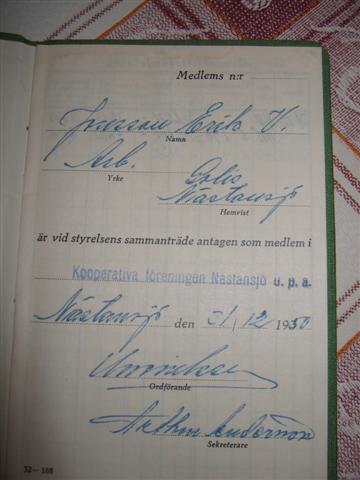 Medlems n:r
Erik V.
Namn
Arb.
Yrke
Nästansjö
Hemvist
är vid styrelsens sammanträde antagen som medlem i
Kooperativa föreningen Nästansjö u.p.a.
Nästansjö den 31/12 1950
Ordförande
Arthur Andersson
Sekreterare
32—168